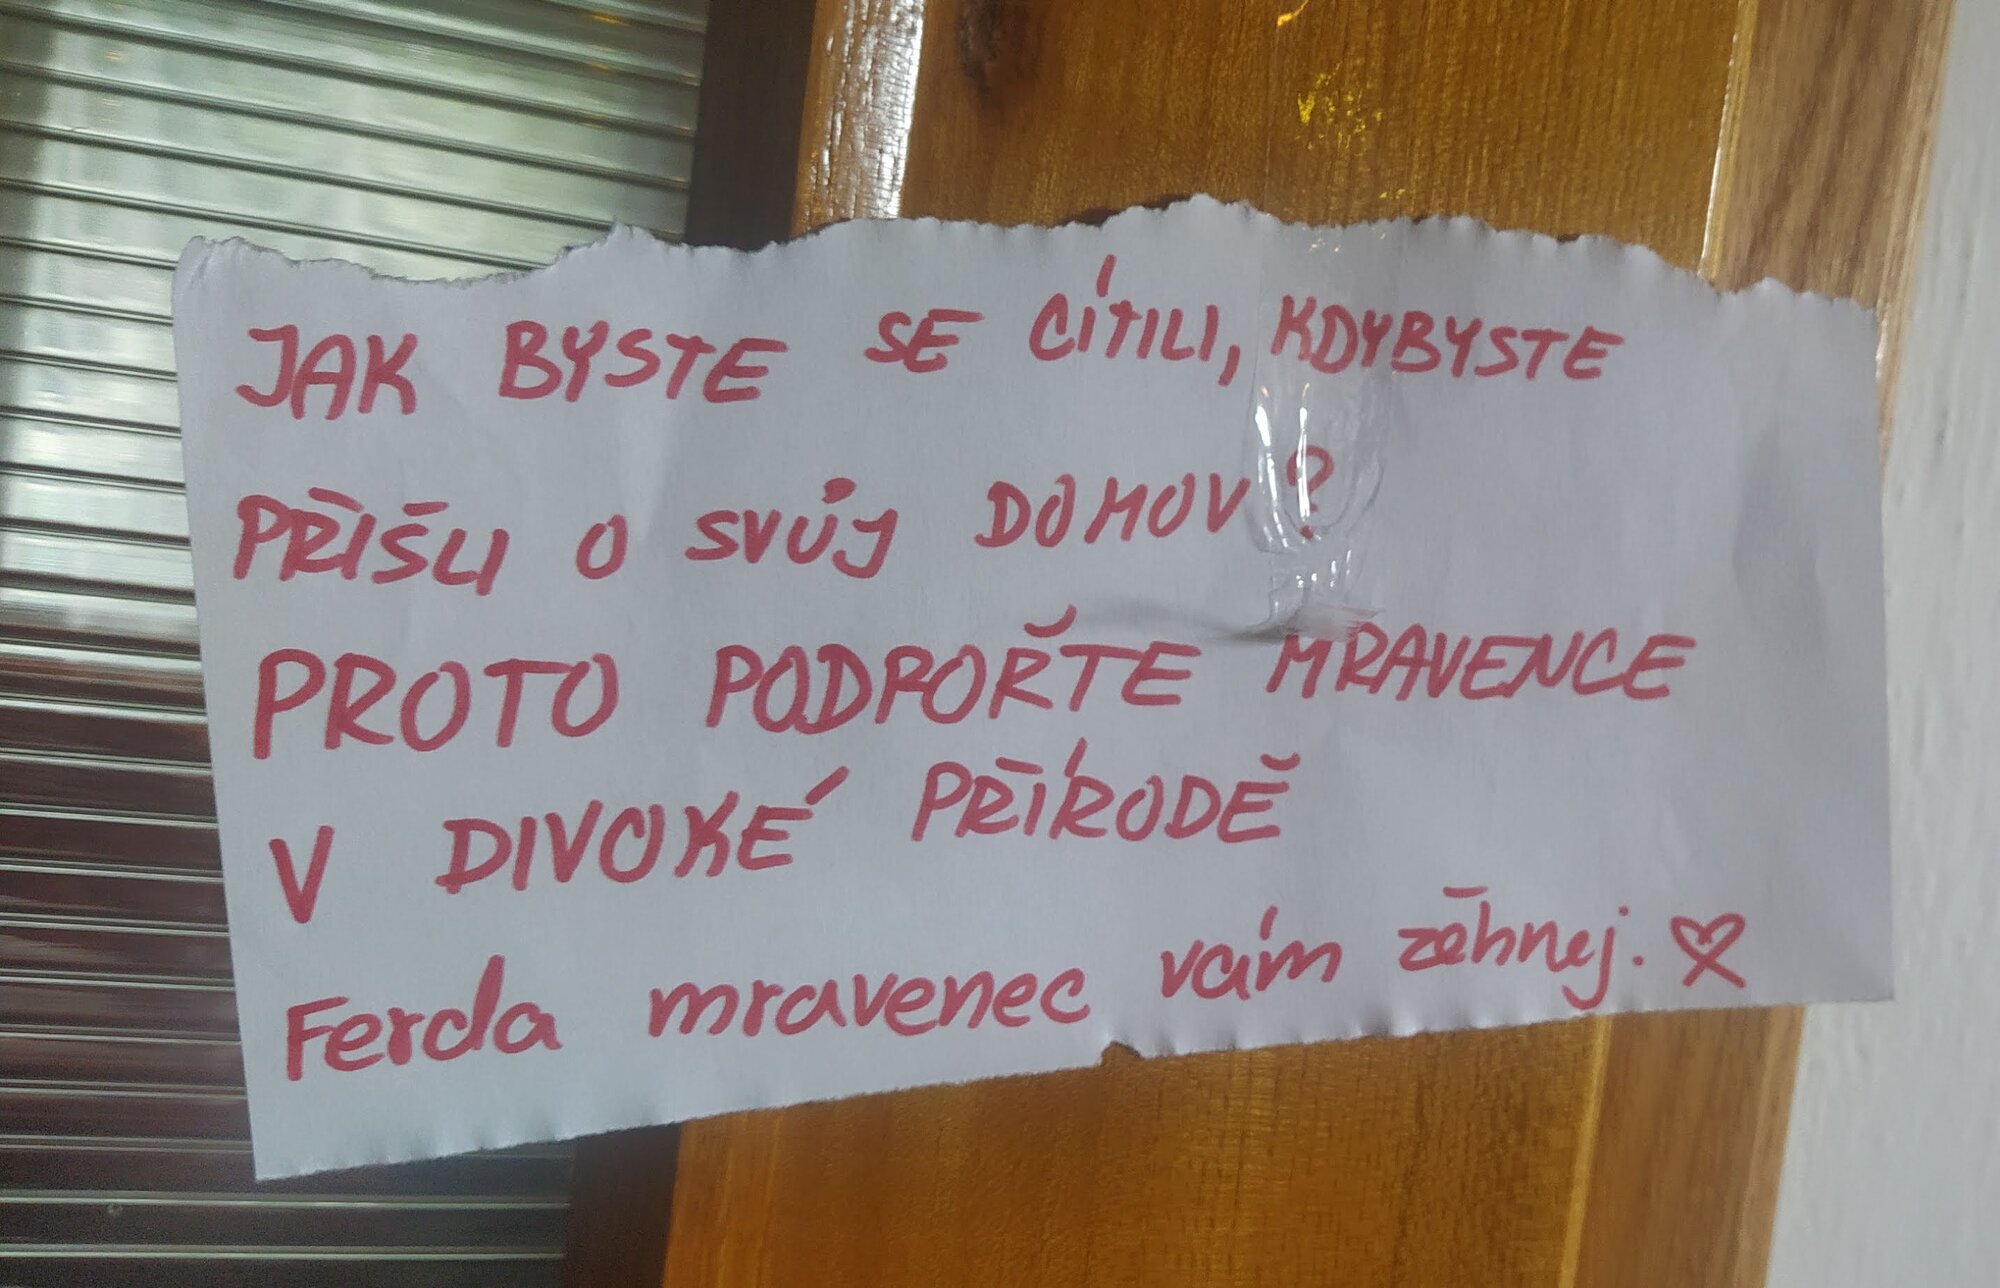 JAK BYSTE SE CÍTILI, KDYBYSTE
PŘIŠLI O SVŮJ DOMOV?
PROTO PODPOŘTE MRAVENCE
V DIVOKÉ PŘÍRODĚ
Ferda mravenec vám žehnej. ♡